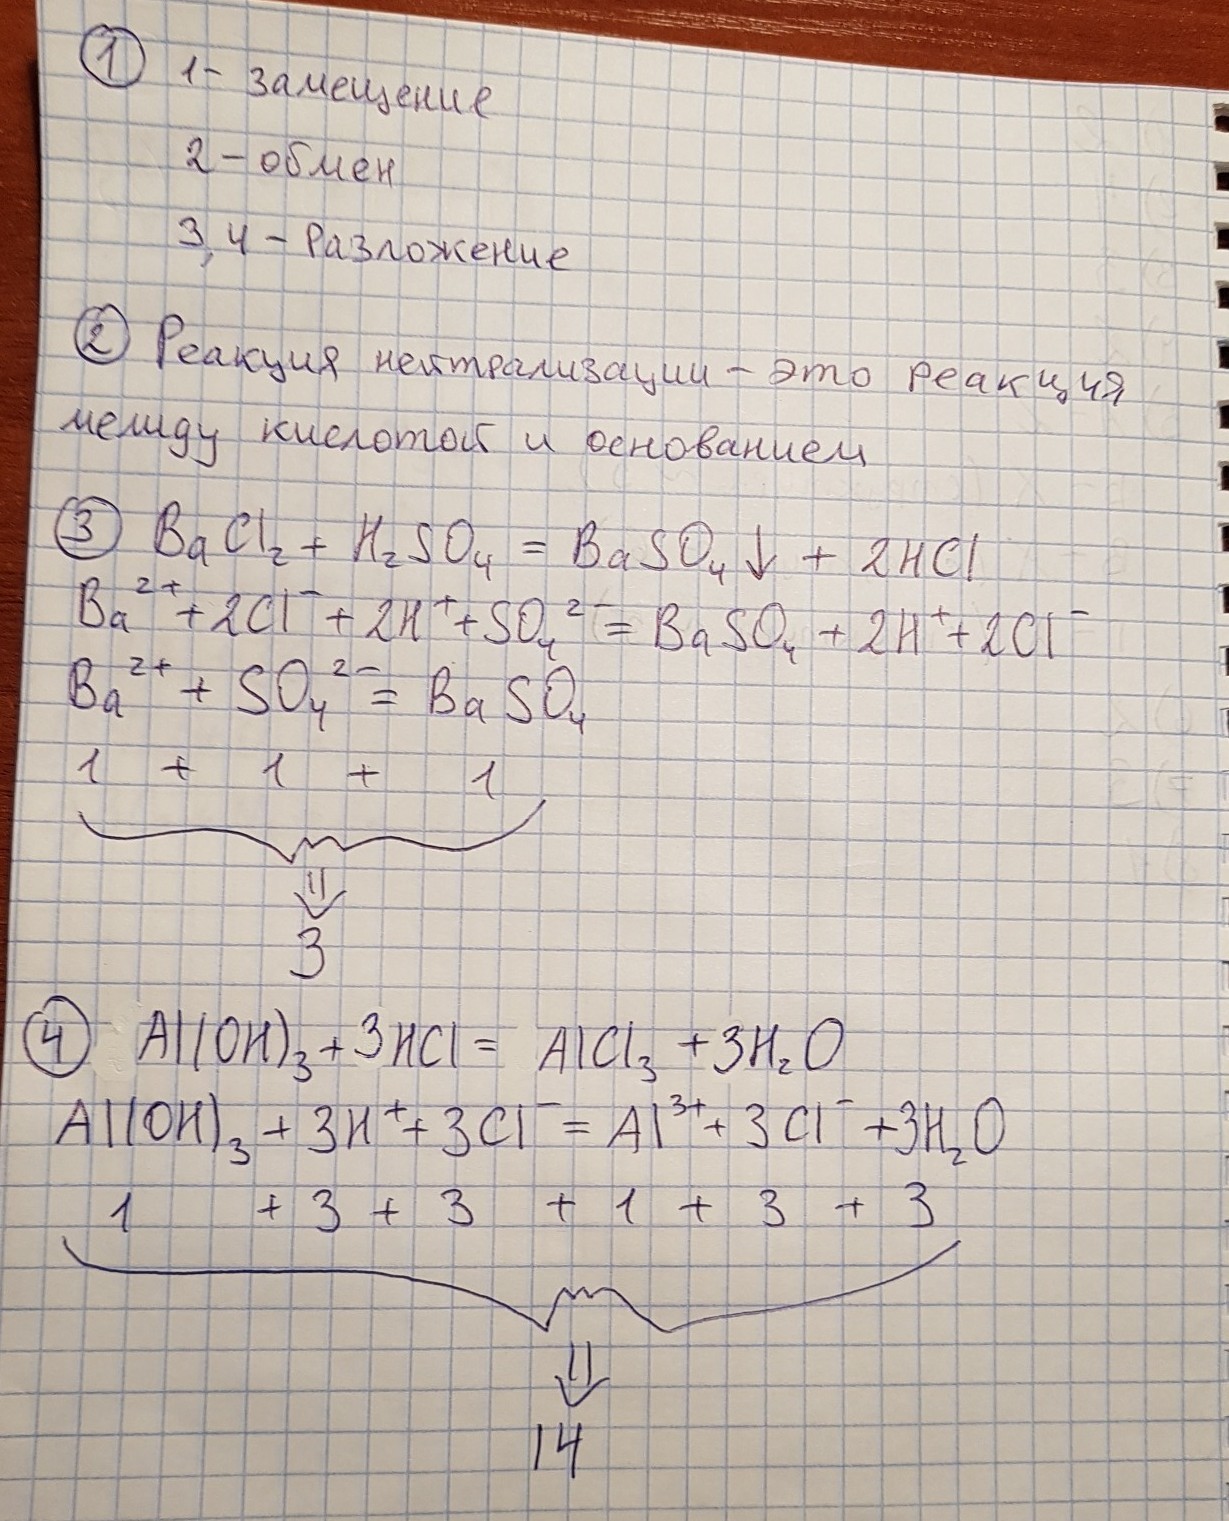 ① 1- замещение
2 - обмен
3,4 - Разложение
② Реакция нейтрализации - это реакция
между кислотой и основанием
③ BaCl₂ + H₂SO₄ = BaSO₄↓ + 2HCl
Ba²⁺ + 2Cl⁻ + 2H⁺ + SO₄²⁻ = BaSO₄ + 2H⁺ + 2Cl⁻
Ba²⁺ + SO₄²⁻ = BaSO₄
1 + 1 + 1
⇓
3
④ Al(OH)₃ + 3HCl = AlCl₃ + 3H₂O
Al(OH)₃ + 3H⁺ + 3Cl⁻ = Al³⁺ + 3Cl⁻ + 3H₂O
1 + 3 + 3 + 1 + 3 + 3
⇓
14